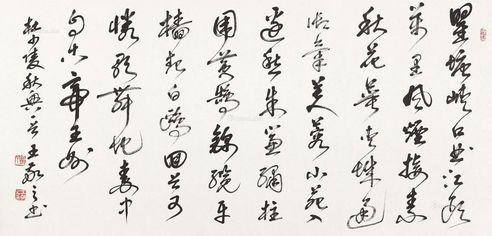 瞿塘峡口曲江頭
萬里風煙接素
秋花萼夾城通
御氣芙蓉小苑入
邊愁朱簾繡柱
圍黃鵠錦纜牙
檣起白鷗回首可
憐歌舞地秦中
自古帝王州
杜少陵秋興